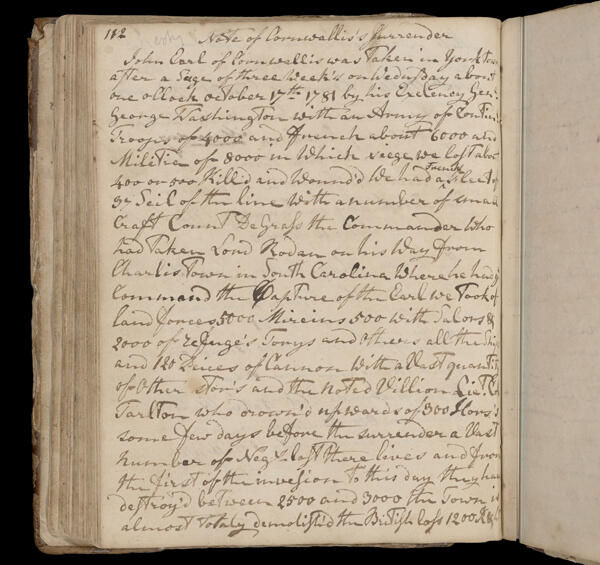 112 Note of Cornwallis's Surrender
John Earl of Cornwellis was Taken in York town
after a Sage of three week's on Wednsday about
one oClock October 17th 1781 by his Exclency Genr
George Washington with an Army of Contin
Troops of 4000 and French about 6000 and
Militia of 8000 in Which siege we lost abou
400 or 500 Killd and Wound'd We had a French fleet of
37 Seil of the line with a number of small
Craft Count De Grass the Commander Who
had Taken Lord Rodan on his Way from
Charlis Town in South Carolina Where he had
Command the Capture of the Earl we Took of
land forces 5000 Mireins 500 with Salors &
2000 of Refuge's Torys and Others all the Shi
and 120 Pieces of Cannon with a Vast quantity
of Other Stor's and the Noted Villion Liet. Co
Tarlton who drown'd upwards of 300 Hors's
some few days before the surrender a Vast
Number of Neg's lost there lives and from
the first of the invesion to this day they hav
destroy'd between 2500 and 3000 the Town is
almost Totaly demolish'd the British loss 1200 K &